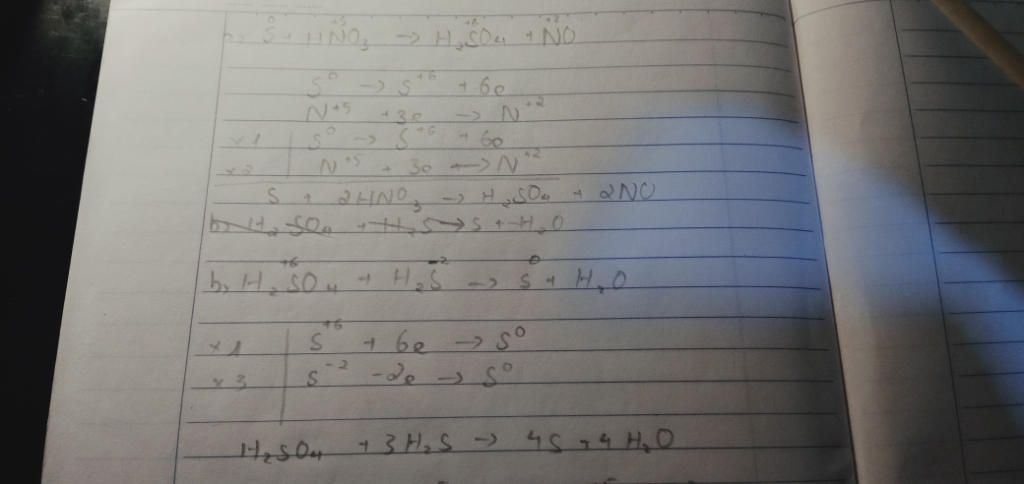 S⁰ + HN⁺⁵O₃ → H₂S⁺⁶O₄ + N⁺²O
S⁰ → S⁺⁶ + 6e
N⁺⁵ + 3e → N⁺²
x1 | S⁰ → S⁺⁶ + 6e
x2 | N⁺⁵ + 3e → N⁺²
S + 2HNO₃ → H₂SO₄ + 2NO
b, H₂SO₄ + H₂S → S + H₂O
b, H₂S⁺⁶O₄ + H₂S⁻² → S⁰ + H₂O
x1 | S⁺⁶ + 6e → S⁰
x3 | S⁻² -2e → S⁰
H₂SO₄ + 3H₂S → 4S + 4H₂O